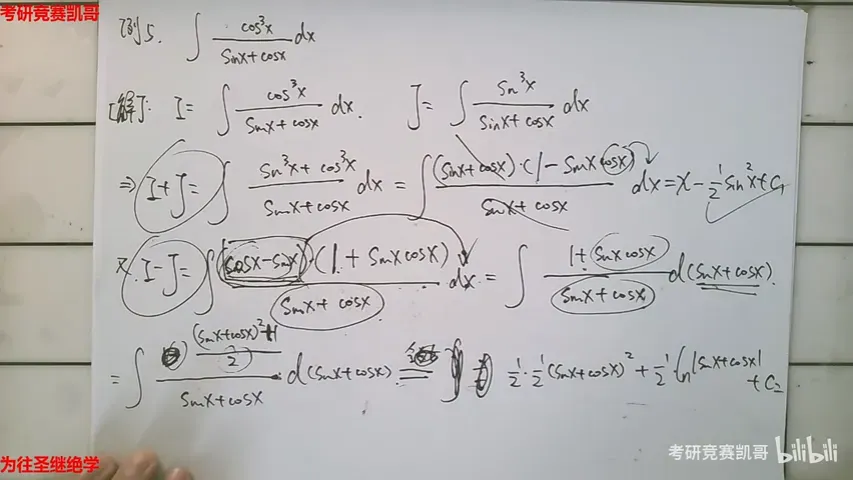 考研竞赛凯哥
例5. ∫ cos³x/(sinx+cosx) dx
[解]: I= ∫ cos³x/(sinx+cosx) dx. J= ∫ sin³x/(sinx+cosx) dx
⇒ I+J= ∫ (sin³x+cos³x)/(sinx+cosx) dx = ∫ (sinx+cosx)·(1-sinxcosx)/(sinx+cosx) dx = x - 1/2 sin²x + C₁
又 I-J= ∫ (cosx-sinx)·(1+sinxcosx)/(sinx+cosx) dx = ∫ (1+sinxcosx)/(sinx+cosx) d(sinx+cosx).
= ∫ ((sinx+cosx)²+1)/2/(sinx+cosx) d(sinx+cosx) = 1/2·1/2(sinx+cosx)² + 1/2 ln|sinx+cosx| + C₂
为往圣继绝学
考研竞赛凯哥 bilibili